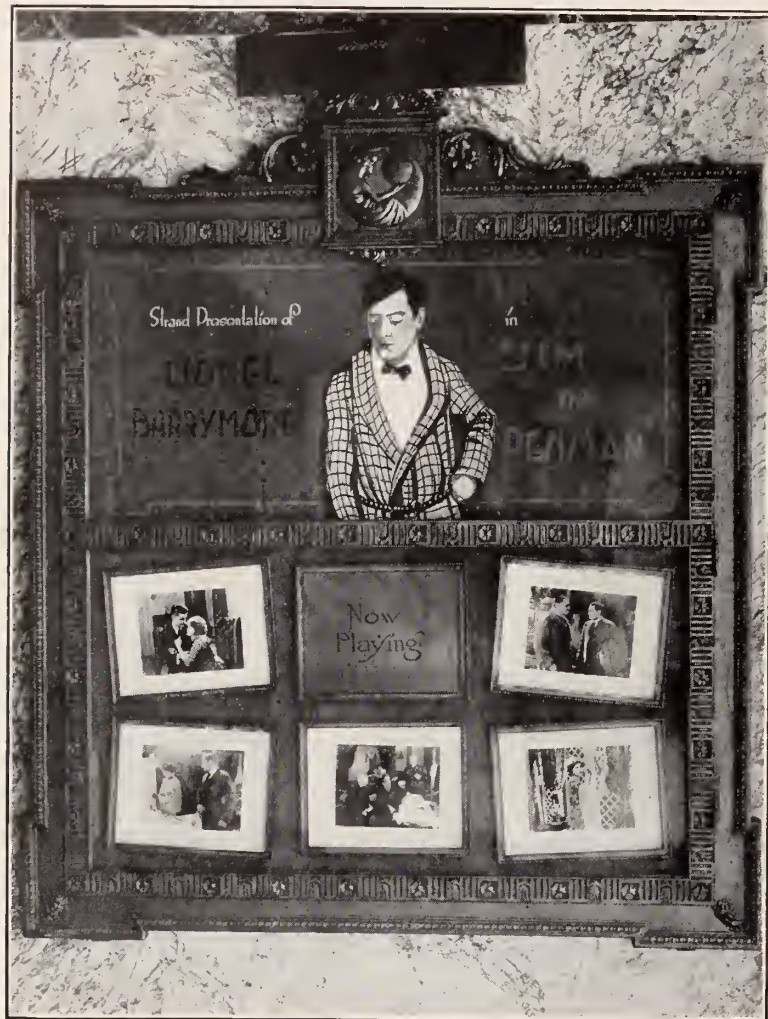 Strand Presentation of
LIONEL
BARRYMORE
in
JIM
THE
PENMAN
Now
Playing